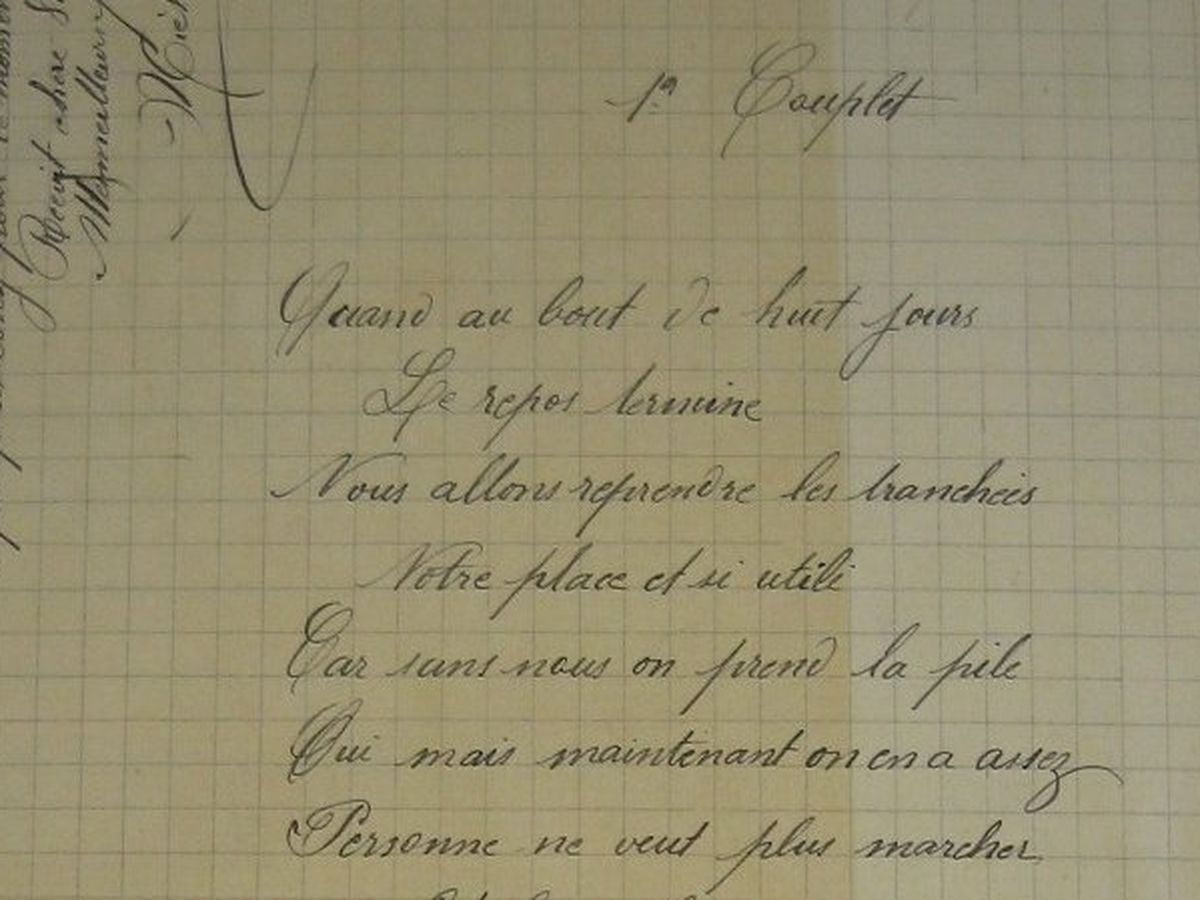 1er Couplet
Quand au bout de huit jours
Le repos termine
Nous allons reprendre les tranchées
Notre place et si utile
Car sans nous on prend la pile
Oui mais maintenant on en a assez
Personne ne veut plus marcher
Reçoit chère